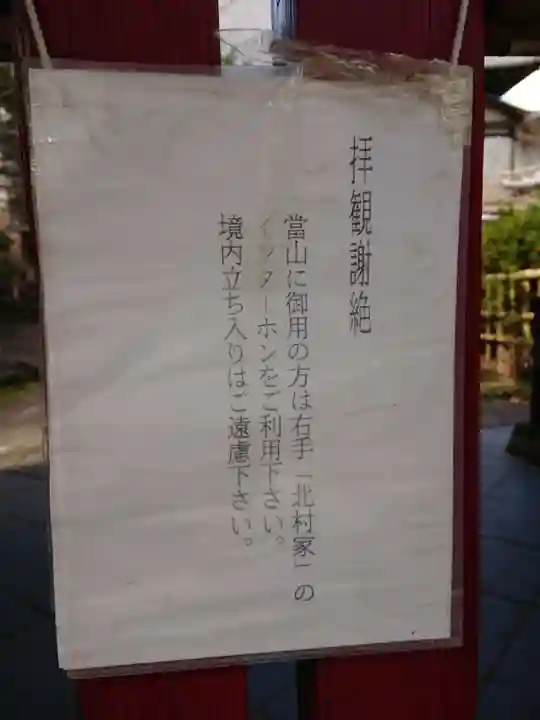 拝観謝絶
當山に御用の方は右手「北村家」の
インターホンをご利用下さい。
境内立ち入りはご遠慮下さい。